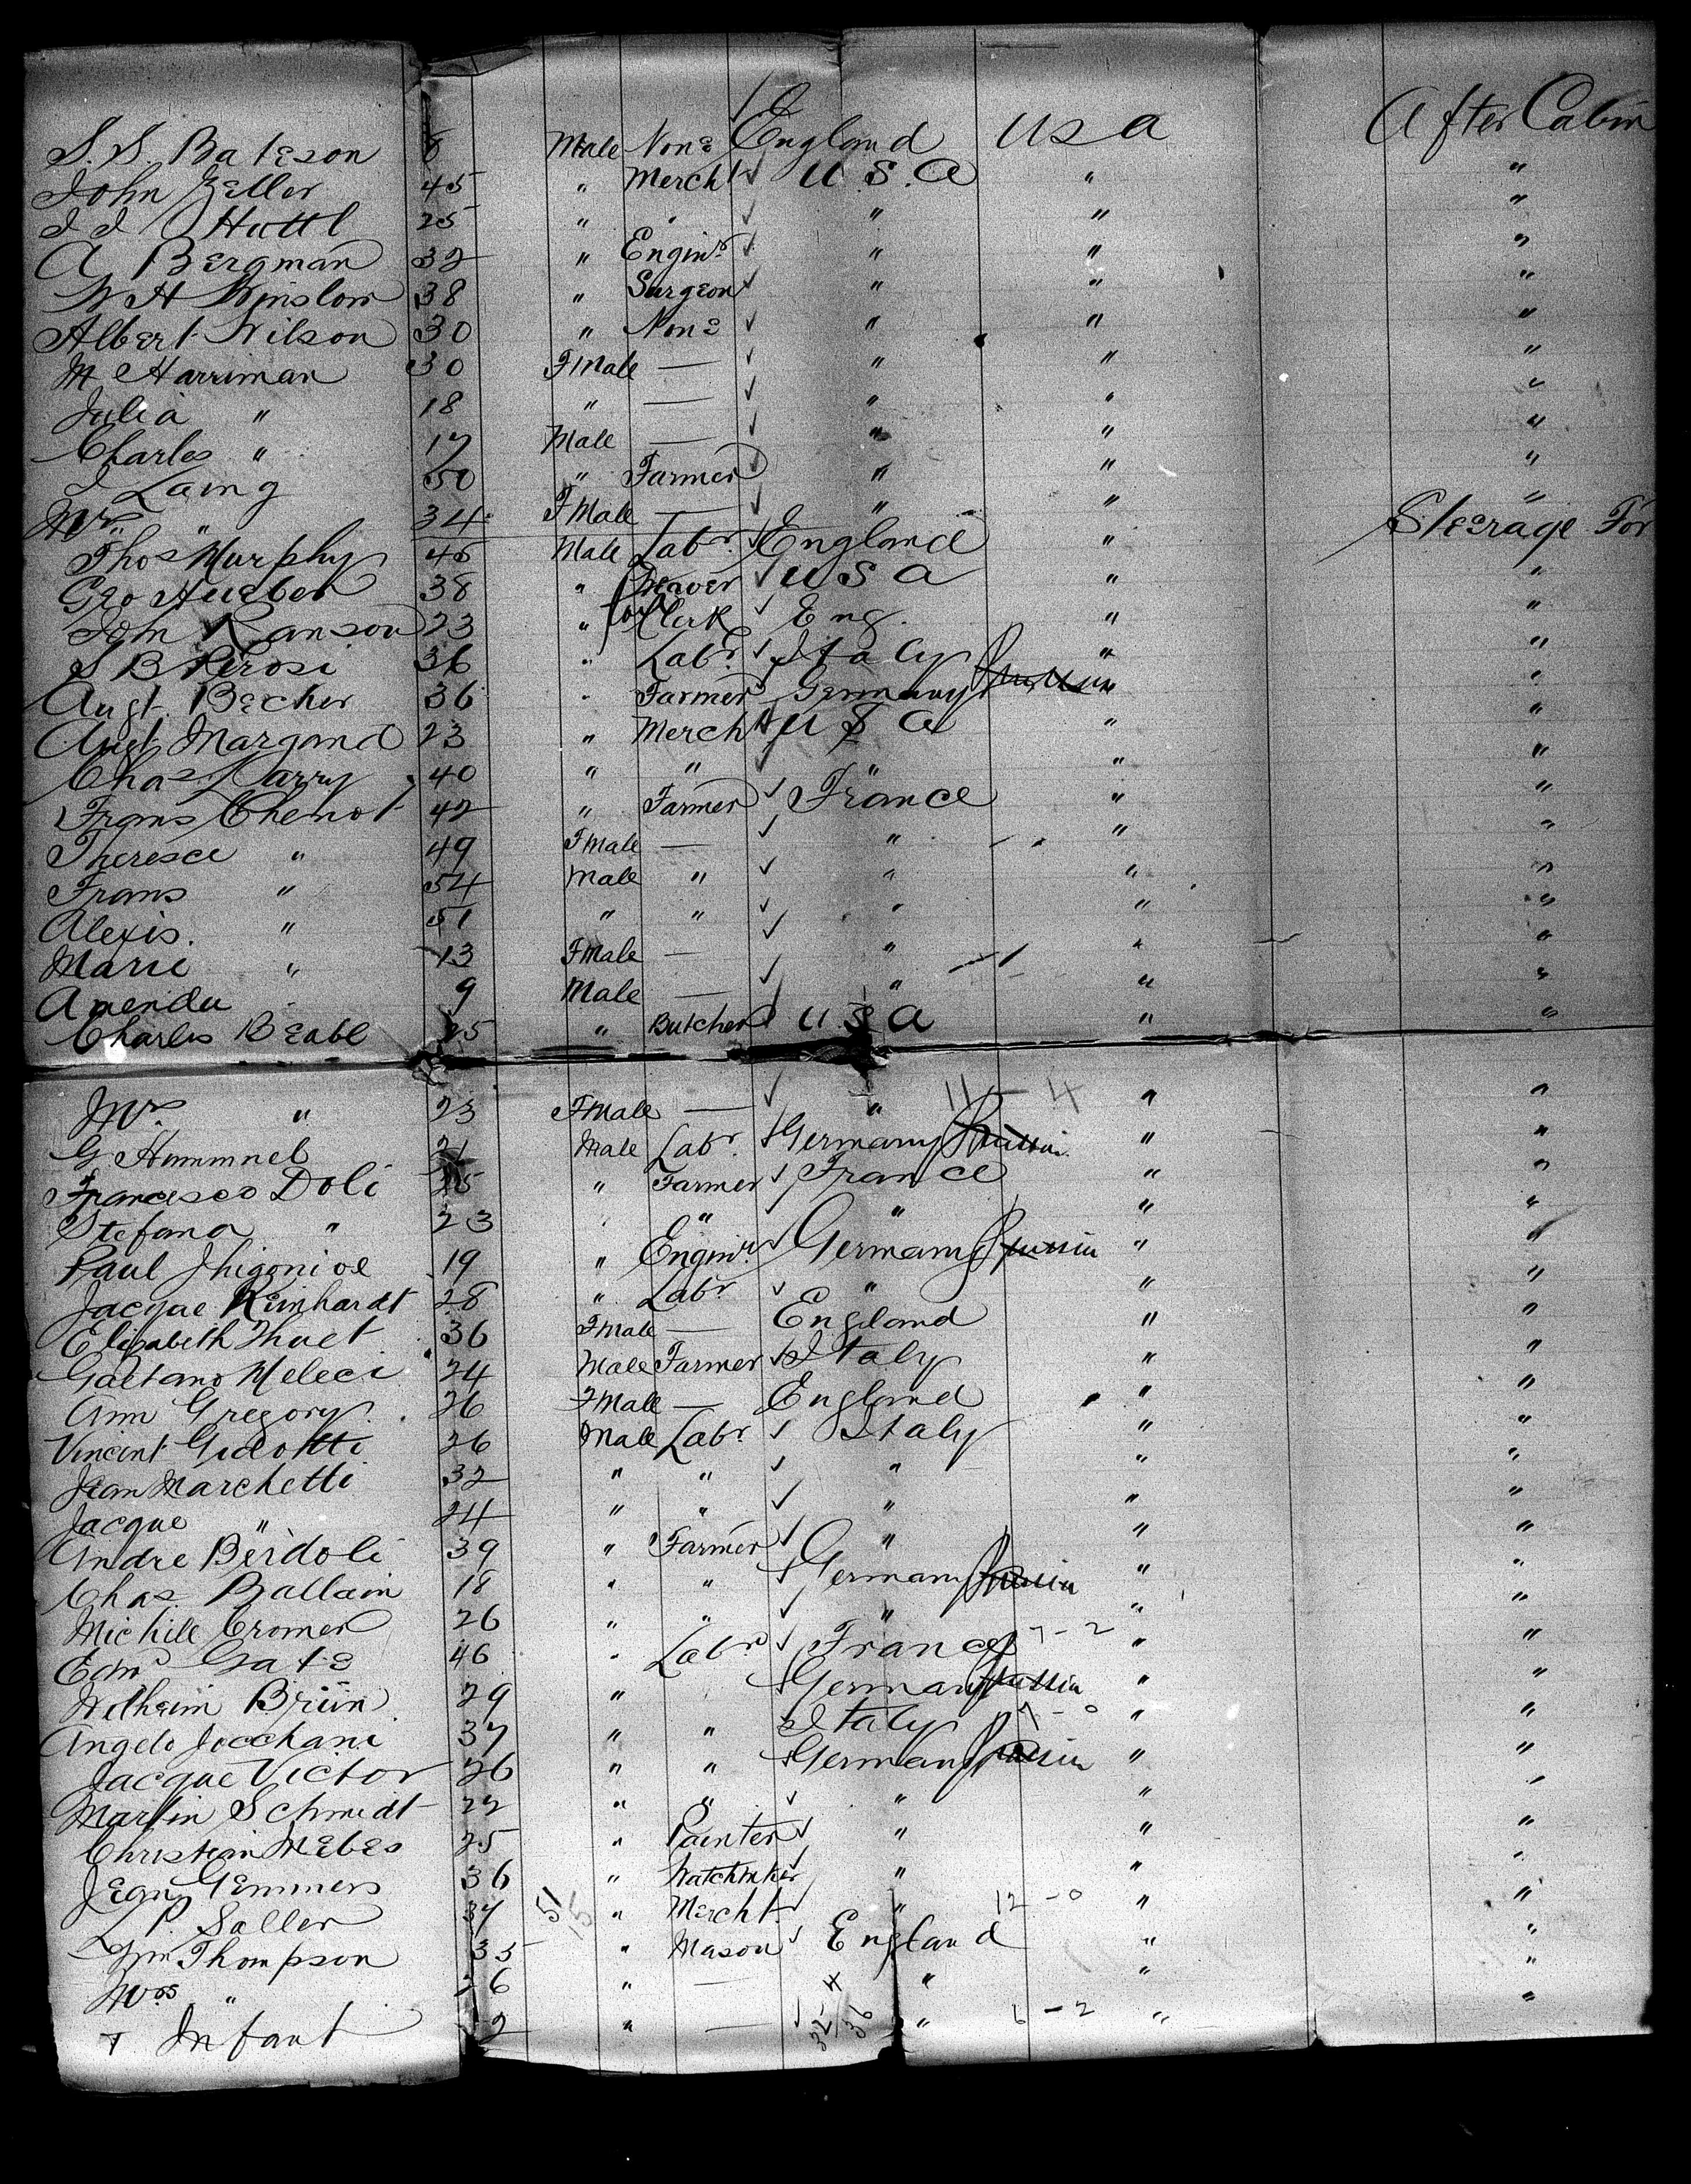 S. S. Bateson 8 Male None England U S A After Cabin
John Zeller 45 " Mercht U. S. A " "
J J Huttl 25 " " " " "
A Bergman 32 " Enginr " " "
W H Winslow 38 " Surgeon " " "
Albert Wilson 30 " None " " "
M Harriman 30 FMale — " " "
Julia " 18 " — " " "
Charles " 17 Male — " " "
J Laing 50 " Farmer " " "
Mrs " 34 FMale — " " "
Thos Murphy 45 Male Labr England " Steerage For
Geo Hueber 38 " Weaver U S A " "
John Ranson 23 " Clerk Eng. " "
S B Perosi 36 " Labr Italy " "
Augt. Becher 36 " Farmer Germany Prussia " "
Augt. Margand 23 " Mercht U S A " "
Chas. Harry 40 " " " " "
Frans Chenot 42 " Farmer France " "
Theresce " 49 FMale — " " "
Frans " 54 Male " " " "
Alexis. " 51 " " " " "
Marie " 13 FMale — " " "
9 Male — " " "
Charles Beabl 25 " Butcher U S A " "
Mrs " 23 FMale — " 11 - 4 " "
G Hummnel 21 Male Labr. Germany Prussia " "
Francesco Doli 25 " Farmer France " "
Stefana " 23 " " " " "
Paul 19 " Enginr. Germany Prussia " "
Jacque Reinhardt 28 " Labr " " "
Elizabeth Thuet 36 FMale — England " "
Gaetano Meleci 24 Male Farmer Italy " "
Ann Gregory. 26 FMale — England " "
Vincent Gidotti 26 Male Labr Italy " "
Jean Marchetti 32 " " " " "
Jacque " 24 " " " " "
Andre Berdoli 39 " Farmer " " "
Chas. Ballain 18 " " Germany Prussia " "
Michile Cromer 26 " " " " "
Edmd Gate 46 " Labr France 7 - 2 " "
Wilheim Brün 29 " Germany Prussia " "
Angelo Jocchani 37 " " Italy 7 - 0 " "
Jacque Victor 26 " " Germany Prussia " "
Martin Schmidt 22 " " " " "
Christian Mebes 25 " Painter " " "
Jean Gemmers 36 " Watchmker " " "
L P. Saller 37 51 15 " Mercht. " 12 - 0 " "
Wm Thompson 35 " Mason England " "
Mrs " 26 " — " " "
+ Infant 2 " — 32-4 36 " 6 - 2 " "